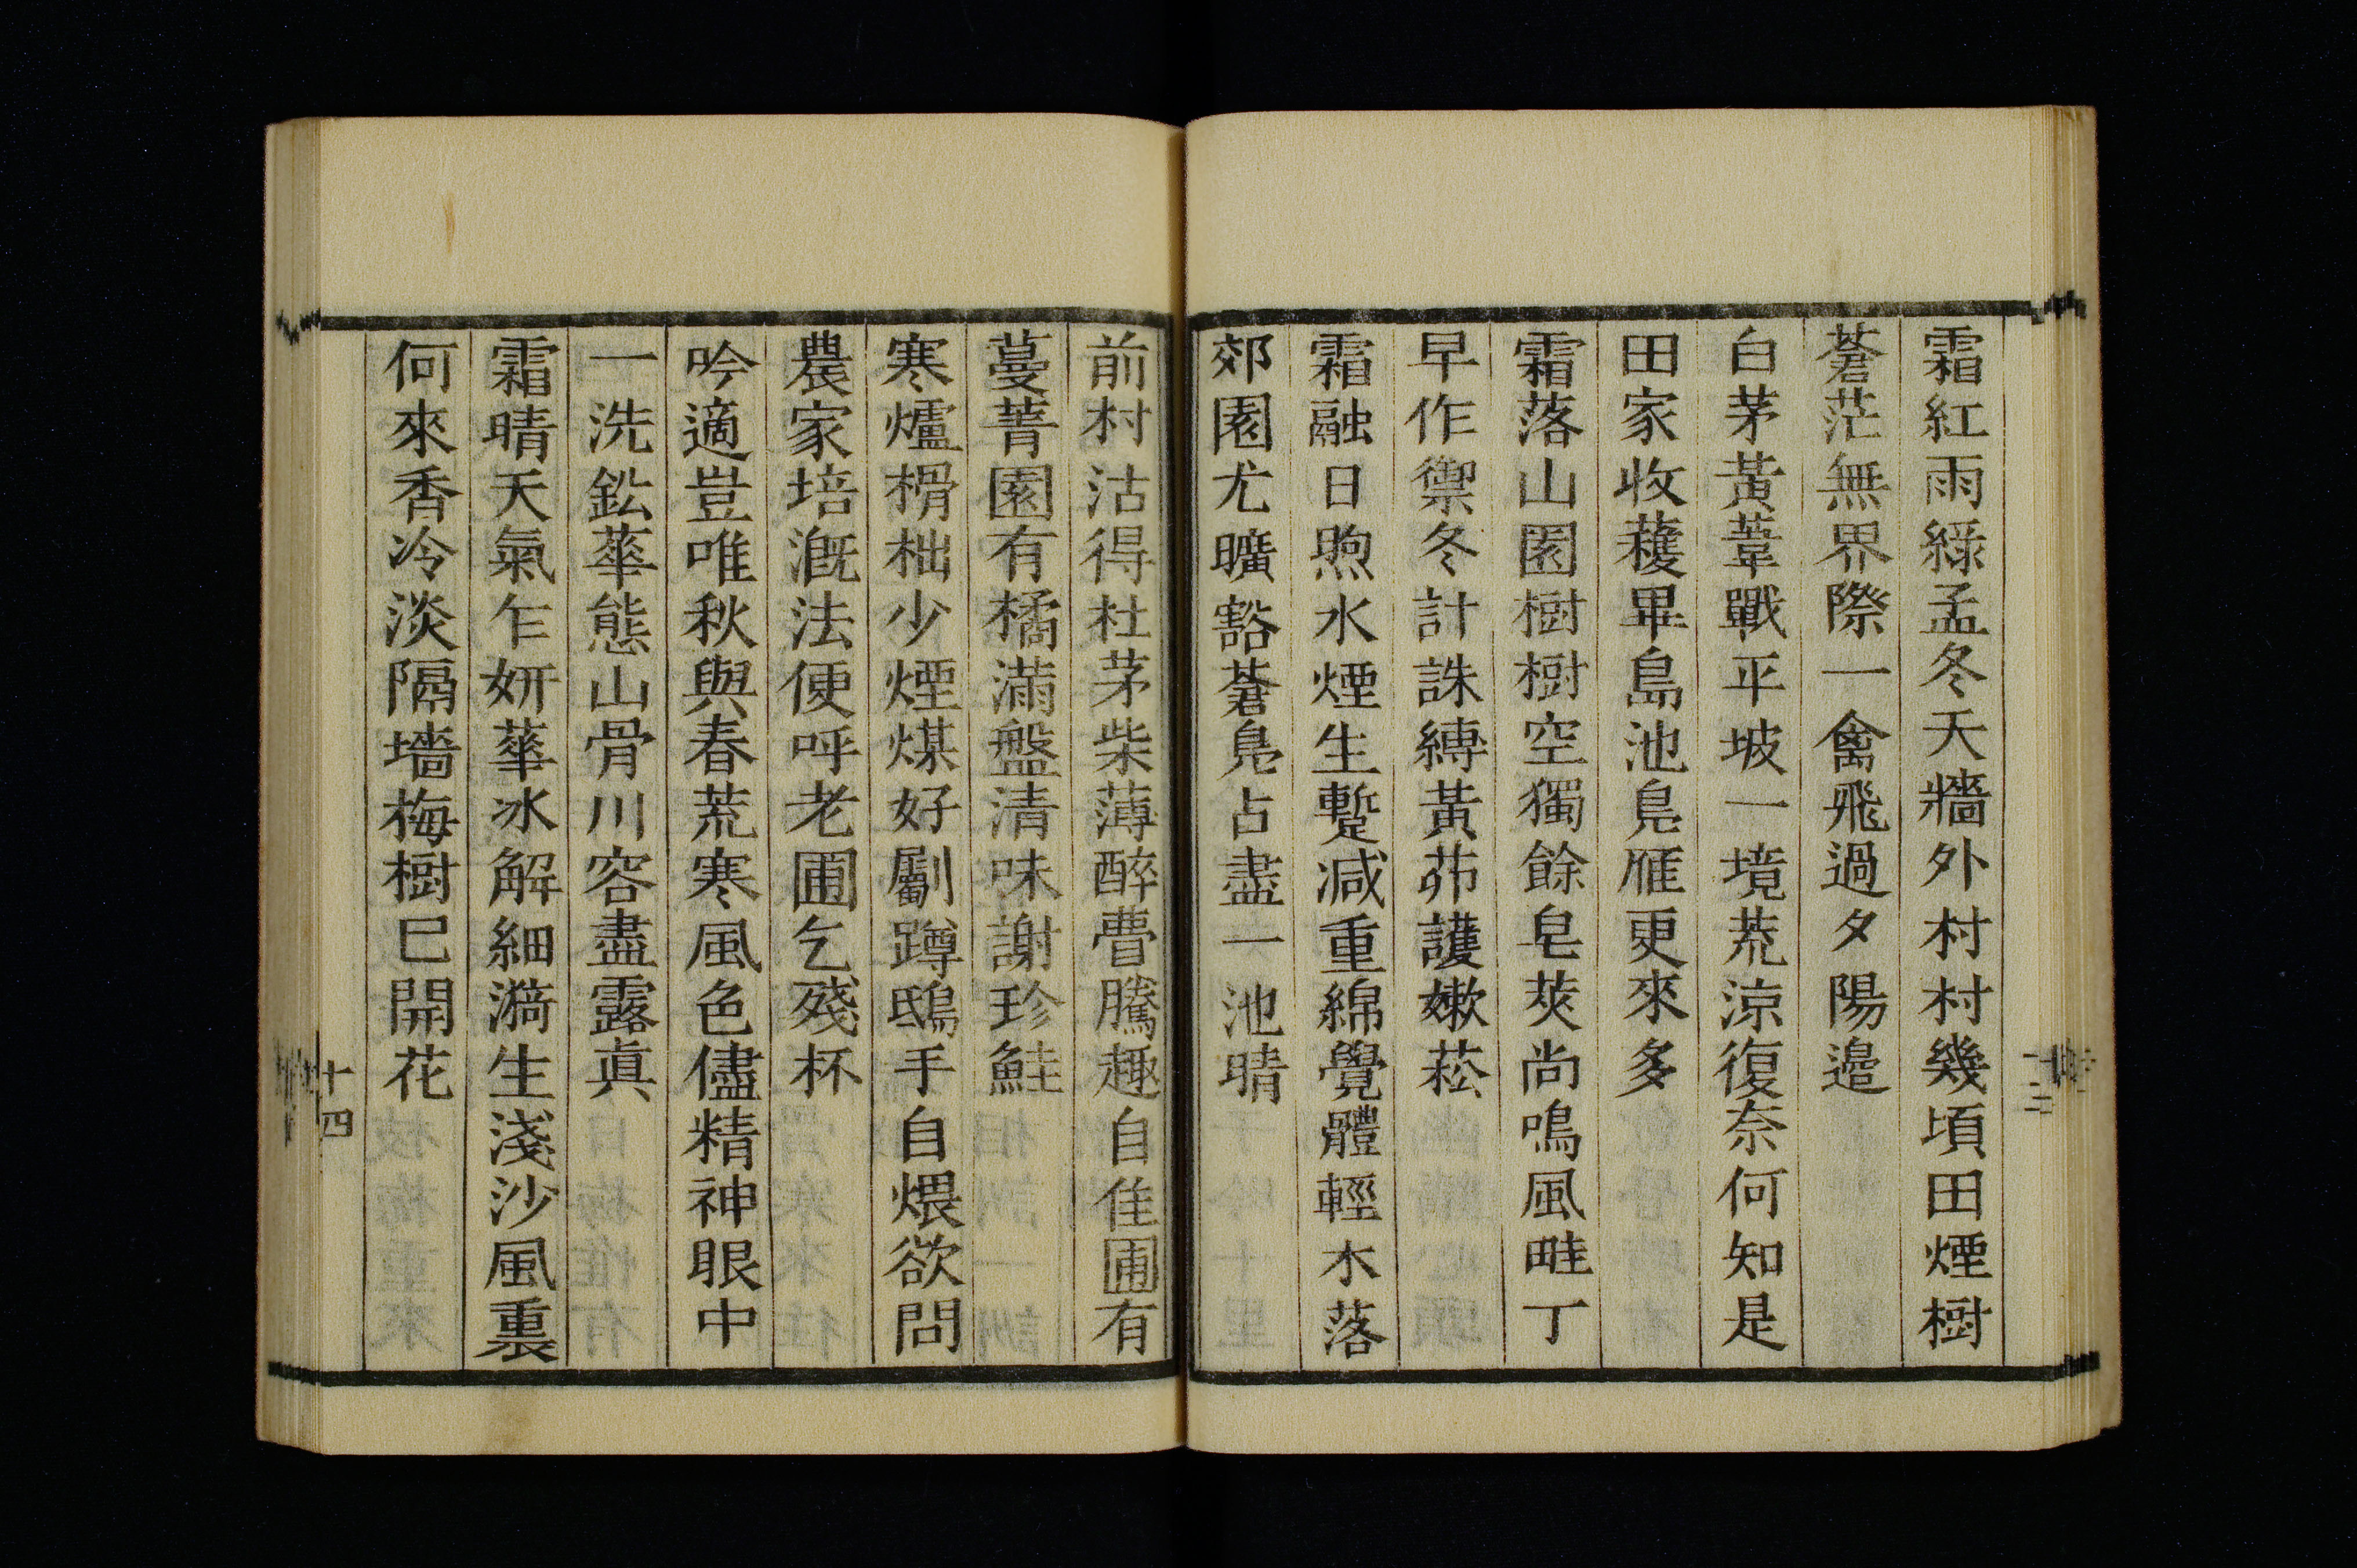 霜紅雨綠孟冬天牆外村村幾頃田煙樹
蒼茫無界際一禽飛過夕陽邉
白茅黃葦戰平坡一境荒涼復奈何知是
田家收穫畢島池鳧雁更來多
霜落山園樹樹空獨餘皂莢尚鳴風畦丁
早作禦冬計誅縛黃茆護嫩菘
霜融日煦水煙生蹔減重綿覺體輕木落
郊園尤曠豁蒼鳧占盡一池晴
前村沽得杜茅柴薄醉瞢騰趣自佳圃有
蔓菁園有橘滿盤清味謝珍鮭
寒爐榾柮少煙煤好劚蹲鴟手自煨欲問
農家培漑法便呼老圃乞殘杯
吟適豈唯秋與春荒寒風色儘精神眼中
一洗鈆華態山骨川容盡露眞
霜晴天氣乍妍華冰解細漪生淺沙風裏
何來香冷淡隔墻梅樹已開花
十四